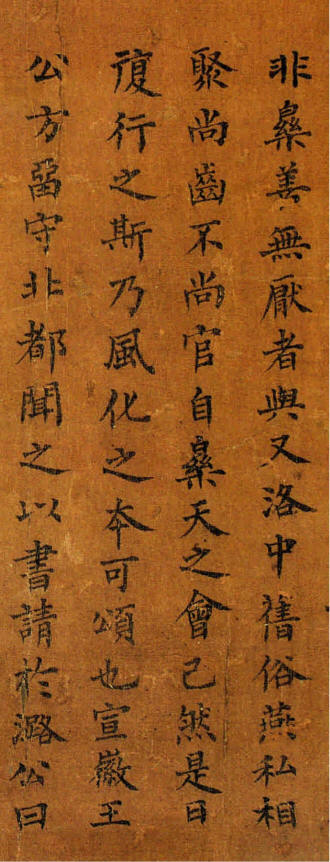 非樂善無厭者與又洛中舊俗燕私相
聚尚齒不尚官自樂天之會已然是日
復行之斯乃風化之本可頌也宣徽王
公方留守北都聞之以書請於潞公曰